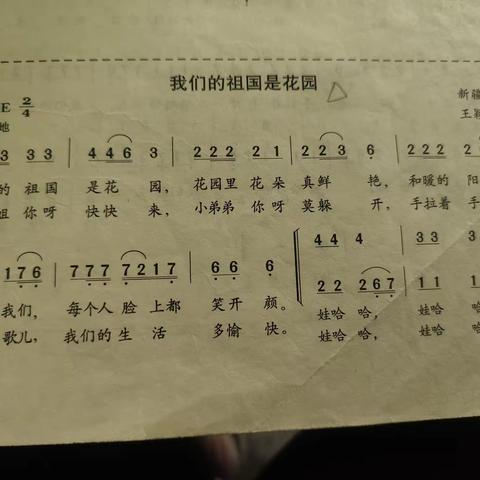 我们的祖国是花园
E 2/4
新疆
地
王
3 33 33 | 446 3 | 222 21 | 223 6 | 222 2
的 祖国 是花 园， 花园里 花朵 真鲜 艳， 和暖的 阳
姐 你呀 快快 来， 小弟弟 你呀 莫躲 开， 手拉着 手
44 4 | 33 3
176 | 777 7217 | 66 6 | 22 267 | 11 1
我们， 每个人 脸上都 笑开 颜。 娃哈 哈， 娃哈 哈
歌儿， 我们的 生活 多愉 快。 娃哈 哈， 娃哈 哈